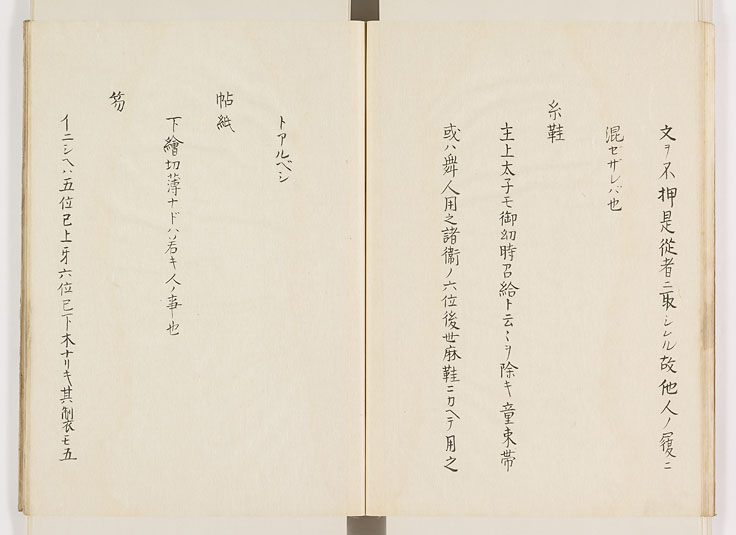 文ヲ不押是從者ニ取シレル故他人ノ履ニ
混ゼザレバ也
糸鞋
主上太子モ御幼時召給ト云〻ヲ除キ童束帯
或ハ舞人用之諸衞ノ六位後世麻鞋ニカヘテ用之
トアルベシ
帖紙
下繪切薄ナドハ若キ人ノ事也
笏
イニシヘハ五位已上牙六位已下木ナリキ其制衣モ五